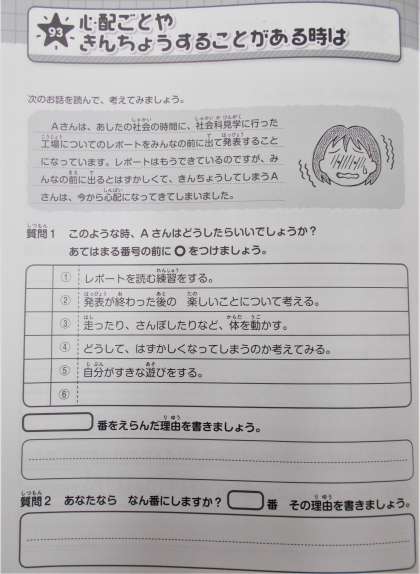 93
心配ごとや
きんちょうすることがある時は
次のお話を読んで、考えてみましょう。
Aさんは、あしたの社会の時間に、社会科見学に行った
工場についてのレポートをみんなの前に出て発表すること
になっています。レポートはもうできているのですが、み
んなの前に出るとはずかしくて、きんちょうしてしまうA
さんは、今から心配になってきてしまいました。
質問1 このような時、Aさんはどうしたらいいでしょうか？
あてはまる番号の前に○をつけましょう。
① レポートを読む練習をする。
② 発表が終わった後の 楽しいことについて考える。
③ 走ったり、さんぽしたりなど、体を動かす。
④ どうして、はずかしくなってしまうのか考えてみる。
⑤ 自分がすきな遊びをする。
⑥
番をえらんだ理由を書きましょう。
質問2 あなたなら なん番にしますか？ 番 その理由を書きましょう。